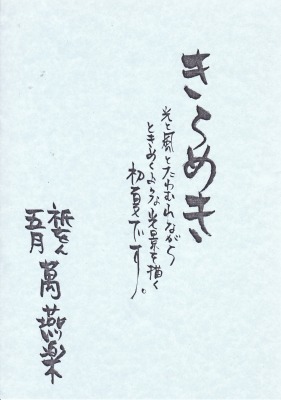 きらめき
光と風とたわむれながら
ときめくような光景を描く
初夏です。
祇をん
五月
萬燕楽